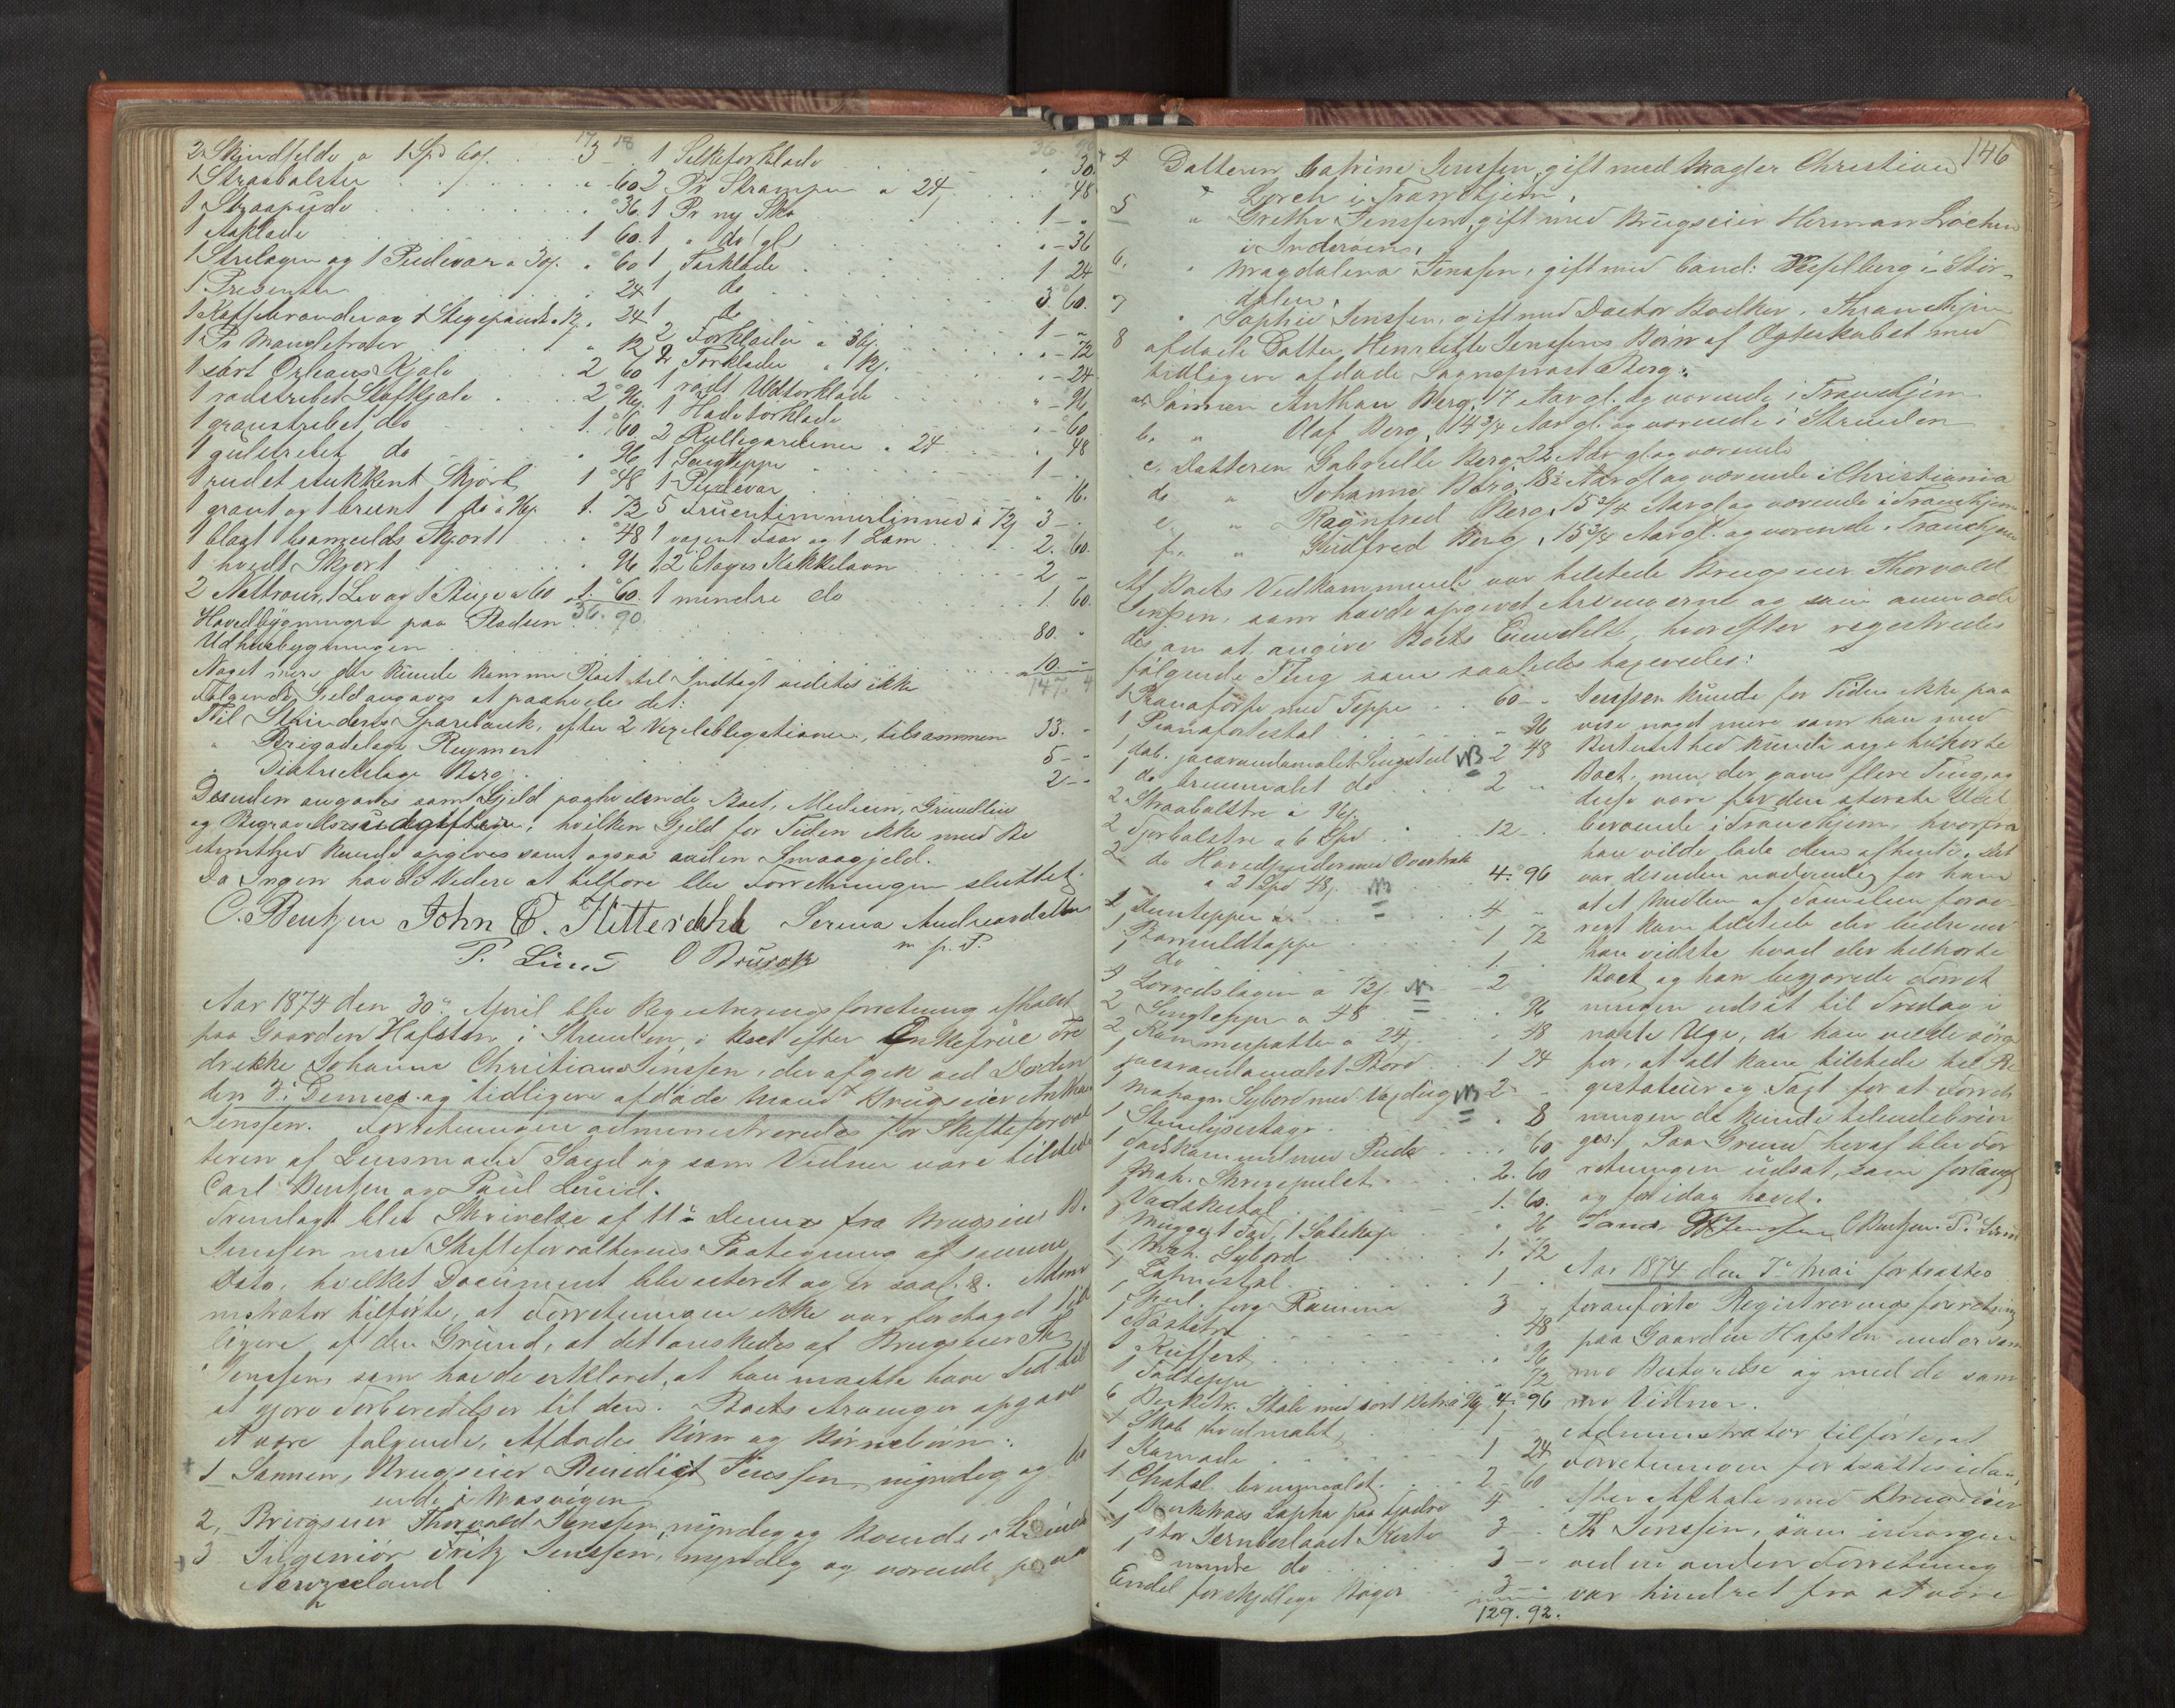 2 Skindfelde a 1 Spd 60 s. 3 -
1 Straabolster " 60
1 Straapude " 36
1 Aaklade 1 60.
1 Strilagen og 1 Pudevar a 30 s. " 60
1 Presenter " 24
1 Kaffebrander og 1 Stegepande a 12 " 24
1 Pr Manglefroier " 12
1 sort Orleans Kjole 2 60
1 rødstribet Stofkjole 2 96
1 grønstribet do 1. 60.
1 gulstribet do " 96
1 rudet stukkent Skjørt 1 48
1 grønt og 1 brunt do a 96 s. 1. 72
1 blaat bomuulds Skjørt " 48
1 hvidt Skjørt " 96
2 Nøttroier, 1 Liv og 1 Trøie a 60 1. 60.
36. 90
1 Silkeforklæde " 30.
2 Pr Strømper a 24 " 48
1 Pr ny Sko 1 - "
1 " do gl " - 36
1 Forklæde 1 24
1 do 3. 60.
1 do 1 - "
2 Forklæder a 36 s. " - 72
2 Forklæder a 12 s. " - 24
1 rødt Uldtørklæde " - 96
1 Hodetørklæde " - 60
2 Rullegardiner a 24 48
1 Sengteppe 1 -
1 Pudevar " 16.
5 Fruentimmerlinned a 72 s 3 - "
1 Faar og 1 Lam 2. 60.
1 2 Etages Kakkelovn 2 -
1 mindre do 1. 60.
Hovedbygningen paa Pladsen 80. "
Udhusbygningen 10. "
147 4
Noget mere der kunde komme Boet til Indtægt vidstes ikke
Følgende Gield angaves at paahvile det:
Til Strindens Sparebank, efter 2 Vexelobligationer, tilsammen 33. -
" Brigadelæge Reymert 5 - "
" Distriktslæge Berg 2 - "
Desuden angaves som Gjeld paahvilende Boet, Medicin, Grundleie
og Begravelsesudgifter, hvilken Gjeld for Tiden ikke med Be
stemthed kunde opgives samt ogsaa anden Smaagjeld.
Da Ingen havde Videre at tilføre blev Forretningen sluttet.
C. Bentzen John E. Kitterdahl Serina Andreasdatter
P. Lund O Brurok m. p. P.
Aar 1874 den 30te April blev Registreringsforretning afholdt
paa Gaarden Hafsten i Strinden, i Boet efter Enkefrue Fre
drikke Johanne Christiane Jenssen, der afgik ved Døden
den 3die Dennes og tidligere afdøde Mand Brugseier Anthon
Jenssen. Forretningen administreredes for Skifteforval
teren af Lensmand Sand og som Vidner vare tilstede
Carl Bentzen og Paul Lund.
Fremlagt blev Skrivelse af 11te Dennes fra Brugseier B.
Jenssen med Skifteforvalterens Paategning af samme
Dato, hvilket Document blev acteret og er saal. Admi
nistrator tilførte, at Forretningen ikke var foretaget tid
ligere af den Grund, at det ønskedes af Brugseier Th.
Jenssen, som havde erklæret, at han maatte have Tid til
at gjøre Forberedelser til den. Boets Arvinger opgaves
at være følgende, Afdødes Børn og Børnebørn:
1 Sønnen, Brugseier Benedigt Jenssen, myndig og bo
ende i Mosvigen
2, Brugseier Thorvald Jenssen, myndig og boende i Strinden
3 Ingeniør Fritz Jenssen, myndig og værende paa
Newzeeland
146
4 Datteren Catrine Jenssen, gift med Mægler Christian
Lorch i Trondhjem.
5 " Grethe Jenssen, gift med Brugseier Herman Løchen
i Inderøen.
6. " Magdalena Jenssen, gift med Cand: Hesselberg i Stør-
dalen.
7 " Sophie Jenssen, gift med Doctor Boeker, Throndhjem
8 afdøde Datter Henriette Jenssens Børn af Ægteskabet med
tidligere afdøde Sogneprest Berg:
a. Sønnen Anthon Berg, 17 Aar gl. og værende i Trondhjem
b. " Olaf Berg, 14 3/4 Aar gl. og værende i Strinden
c. Datteren Gabrielle Berg 22 Aar gl og værende
d. " Johanne Berg, 18 1/2 Aar gl og værende i Christiania
e. " Ragnfred Berg, 15 3/4 Aar gl og værende i Trondhjem
f. " Gudfred Berg, 15 3/4 Aar gl. og værende i Trondhjem
Af Boets Vedkommende var tilstede Brugseier Thorvald
Jenssen, som havde opgivet Arvingerne og som anmode
des om at angive Boets Eiendele, hvorefter registredes
følgende Ting som saaledes taxeredes:
1 Pianoforte med Teppe 60 - "
1 Pianofortestol - 96
1 dob. jacarandamalet Sengsted NB 2 48
1 do brunmalet do 2 "
2 Straabolstre a 96 s.
2 Fjerbolstre a 6 Spd 12 - "
2 do Hovedpuder med Overtræk
a 2 Spd 48 s. NB 4. 96
2 Duntepper a 4 "
1 Bomuldteppe 1 72
1 do 1. "
3 Lærredslagen a 72 s. NB 2
2 Sengtepper a 48 " 96
2 Kammerpotter a 24 s. " 48
1 jacarandamalet Bord 1 24
1 Mahagn. Sybord med Voxdug NB 2 "
1 Stenlysestage " 8
1 " 60
1 Mah. Skrivepulet 2. 60
1 Vadskestol 1. 60.
1 Mugge, 1 Fad, 1 Sæbekop " 36
1 Mah. Sybord 1. 72
1 Lænestol 1 "
1 Speil, forg Ramme 3 "
1 " 48
1 Kuffert " 96
1 Fodteppe " 72
6 Birketr. Stole med sort Betræk a 96 4. 96
1 Skab hvidmalt 1 -
1 Komode 1 24
1 brunmalet 2 - 60
1 Sopha paa Fjedre 4 "
1 stor Jernbeslaaet Kiste 3 - "
1 mindre do 3 - "
Endel forskjellige Bøger 3 - "
129. 92.
Jenssen kunde for Tiden ikke paa
vise noget mere som han med
Bestemthed kunde sige tilhørte
Boet, men der gaves flere Ting, og
disse vare for den største Deel
beroende i Trondhjem, hvorfra
han vilde lade dem afhente. Det
var desuden nødvendig for ham
at et Medlem af Familien foræv
rigt kom tilstede der bedre end
han vidste hvad der tilhørte
Boet og han begjærede Forret
ningen udsat til Fredag i
næste Uge, da han vilde sørge
for, at Alt kom tilstede til Re
gistratur og Taxt for at Forret
ningen da kunde tilendebrin
ges. Paa Grund heraf blev For
retningen udsat, som forlangt
og for idag hævet.
Sand Th Jenssen C Bentzen P. Lund
Aar 1874 den 7de Mai fortsattes
foranførte Registreringsforretning
paa Gaarden Hafsten under sam
me Bestyrelse og med de sam
me Vidner.
Administrator tilførte, at
Forretningen fortsattes idag
efter Aftale med Brugseier
Th Jenssen, som imorgen
ved en anden Forretning
var hindret fra at være